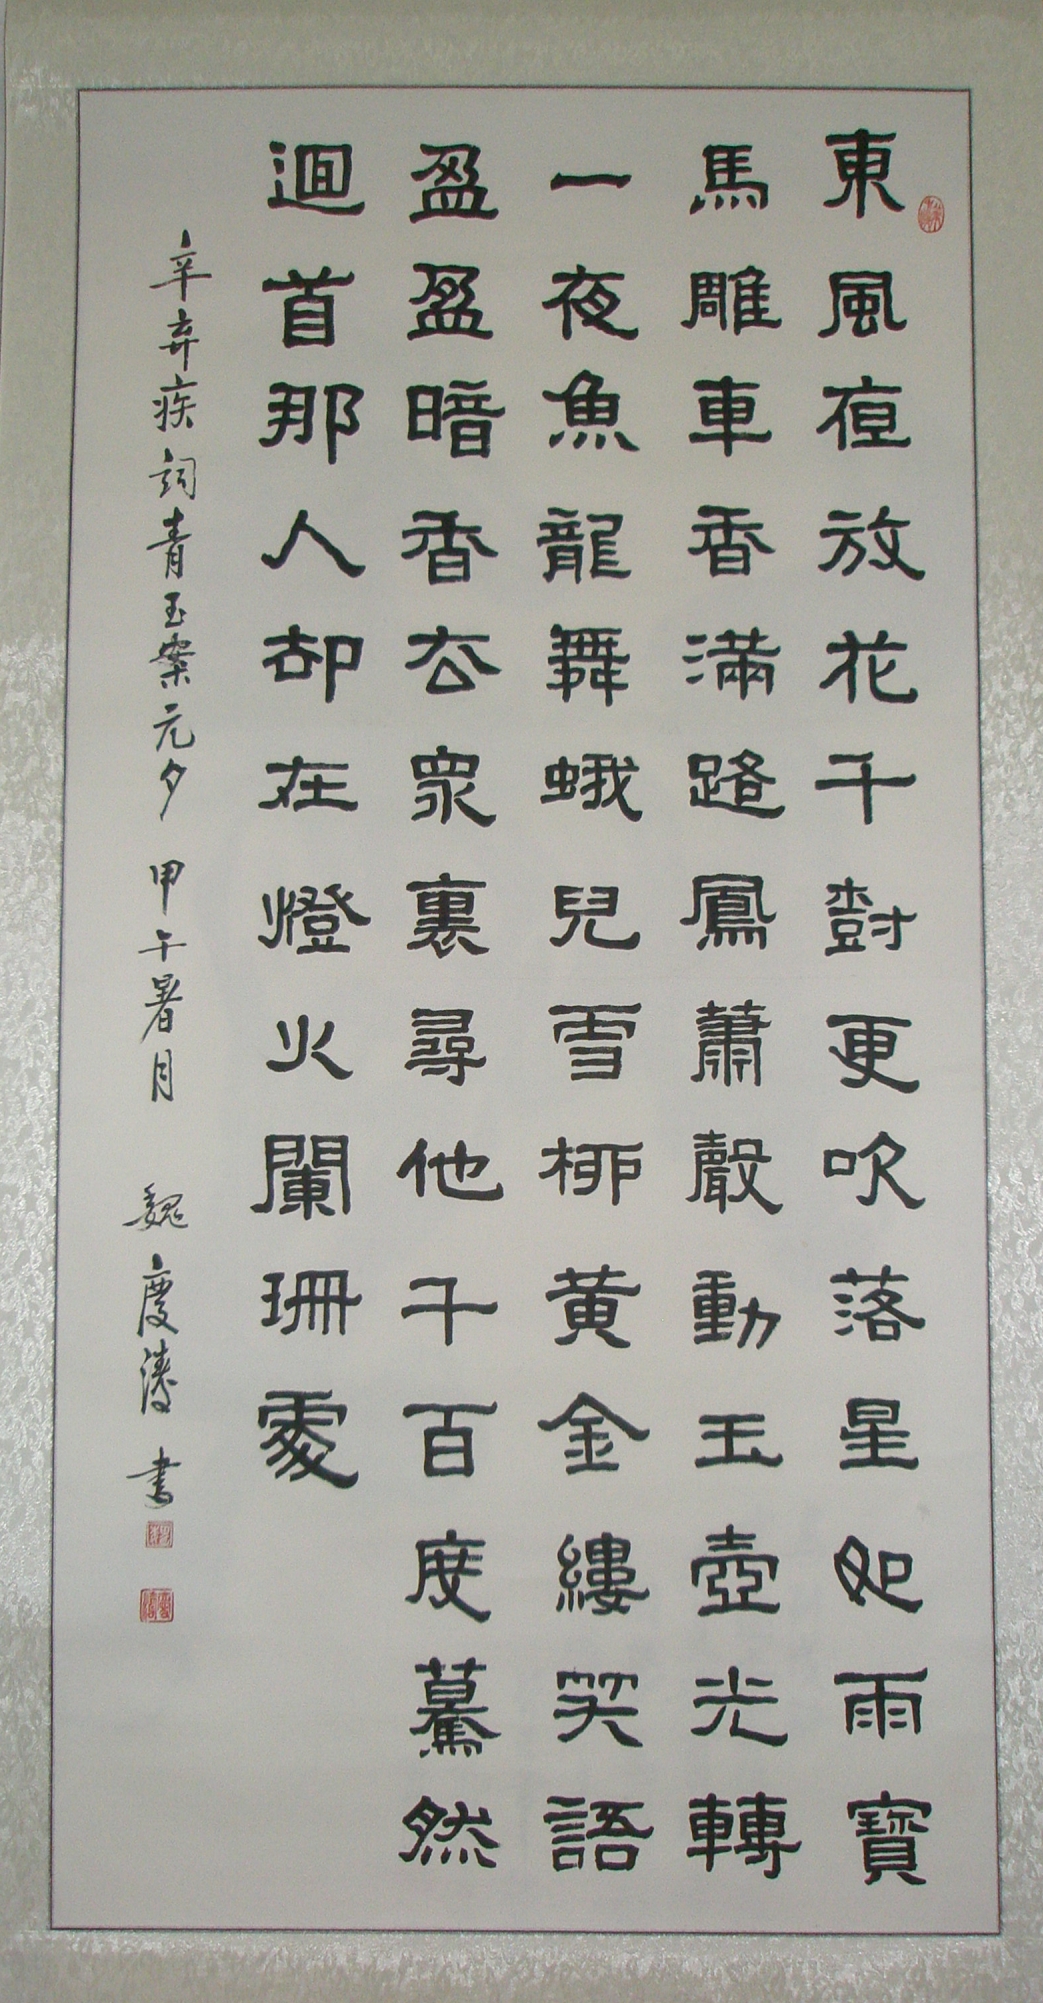 東風夜放花千樹更吹落星如雨寶
馬雕車香滿路鳳蕭聲動玉壺光轉
一夜魚龍舞蛾兒雪柳黃金縷笑語
盈盈暗香去衆裏尋他千百度驀然
迴首那人却在燈火闌珊處
辛弃疾詞青玉案元夕 甲午暑月 魏慶濤 書